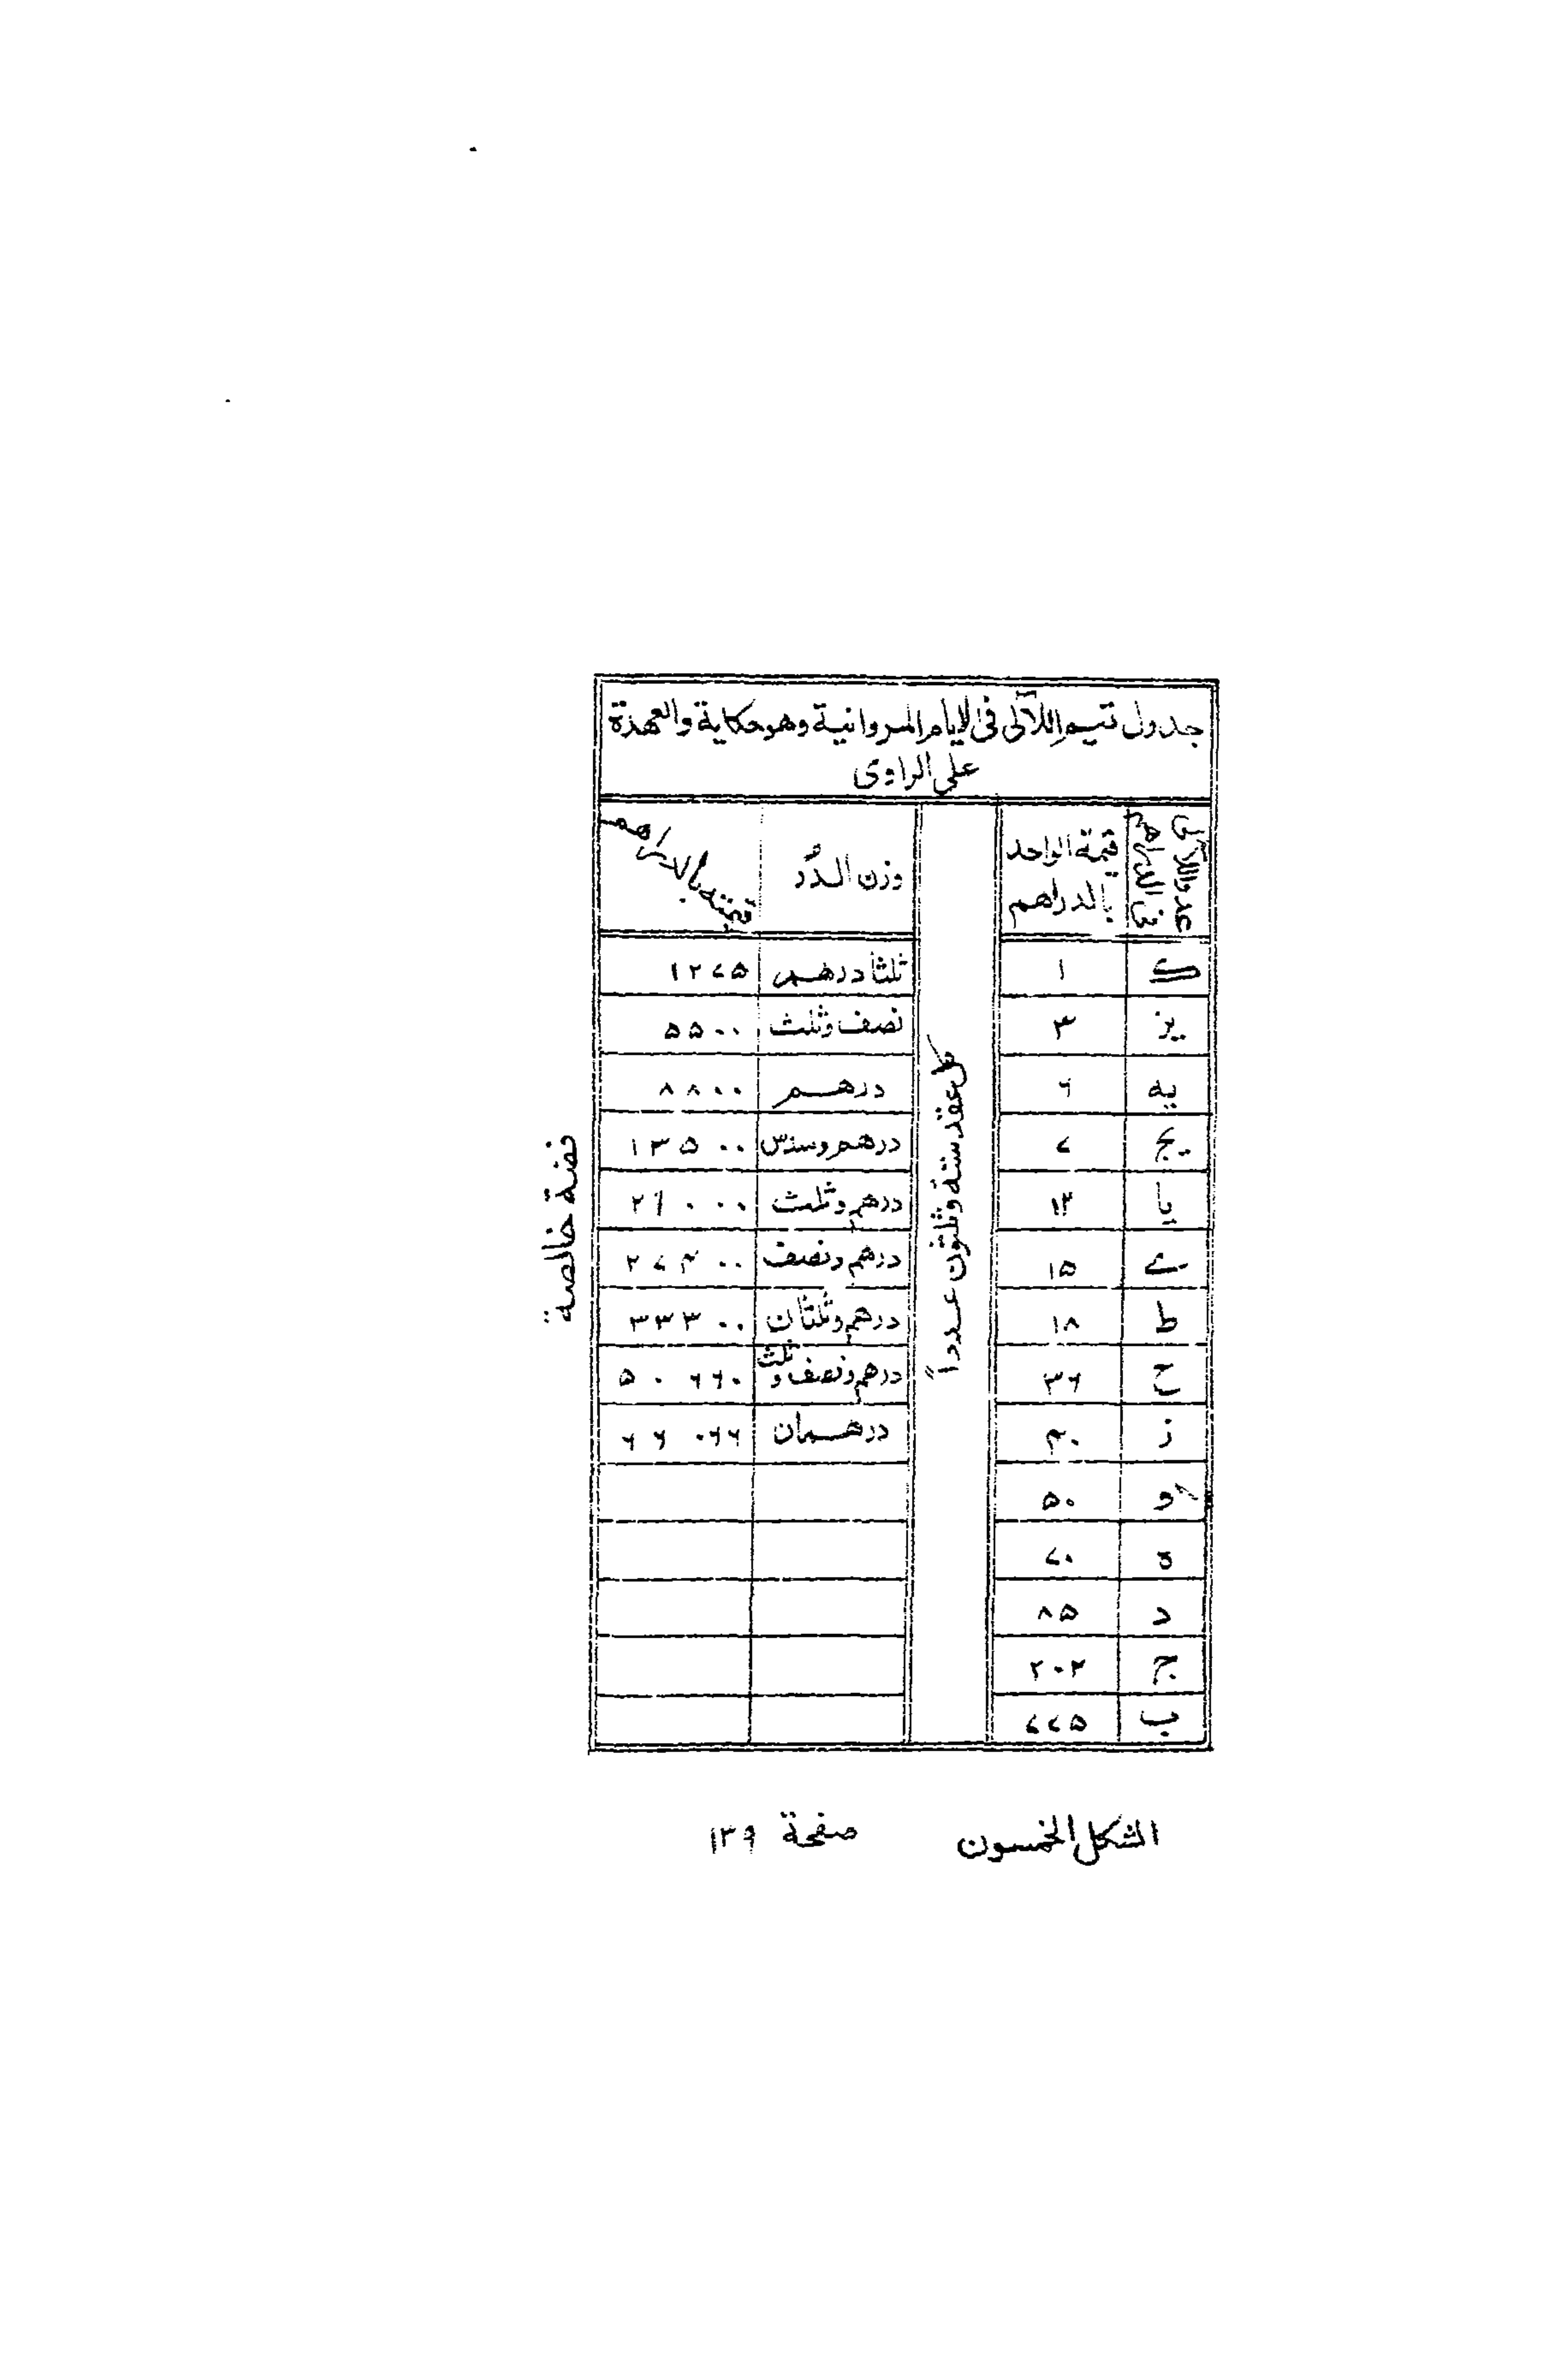 جدول تتيم اللآلى فى الايام المروانية وهو حكاية والعهدة
على الراوى
عدد اللآلى فى الدراهم | قيمة الواحد بالدراهم | كل عقد ستة وثلثون عدداً | وزن الدُّر | قيمته بالدراهم
ك | ١ | ثلثا درهم | ١٢٧٥
يز | ٣ | نصف وثلث | ٥٥٠٠
يه | ٦ | درهم | ٨٨٠٠
يج | ٧ | درهم وسدس | ١٣٥٠٠
يا | ١٣ | درهم وثلث | ٢١٠٠٠
ے | ١٥ | درهم ونصف | ٢٧٤٠٠
ط | ١٨ | درهم وثلثان | ٣٣٣٠٠
ح | ٣٦ | درهم ونصف وثلث | ٥٠٦٦٠
ز | ٤٠ | درهمان | ٦٦٠٦٦
و | ٥٠
ه | ٧٠
د | ٨٥
ج | ٢٠٢
ب | ٧٧٥
فضة خالصة
الشكل الخمسون صفحة ١٣٩